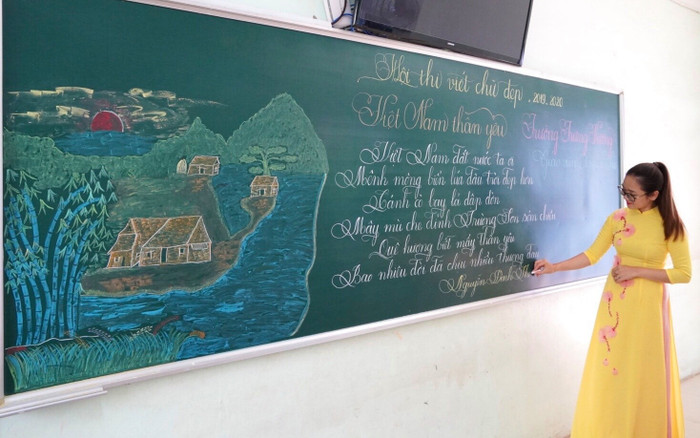 Hội thi viết chữ đẹp . 2019_2020
Việt Nam thân yêu
Việt Nam đất nước ta ơi
Mênh mông biển lúa đâu trời đẹp hơn
Cánh cò bay lả dập dờn
Mây mù che đỉnh Trường Sơn sớm chiều
Quê hương biết mấy thân yêu
Bao nhiêu đời đã chịu nhiều thương đau
Nguyễn Đình